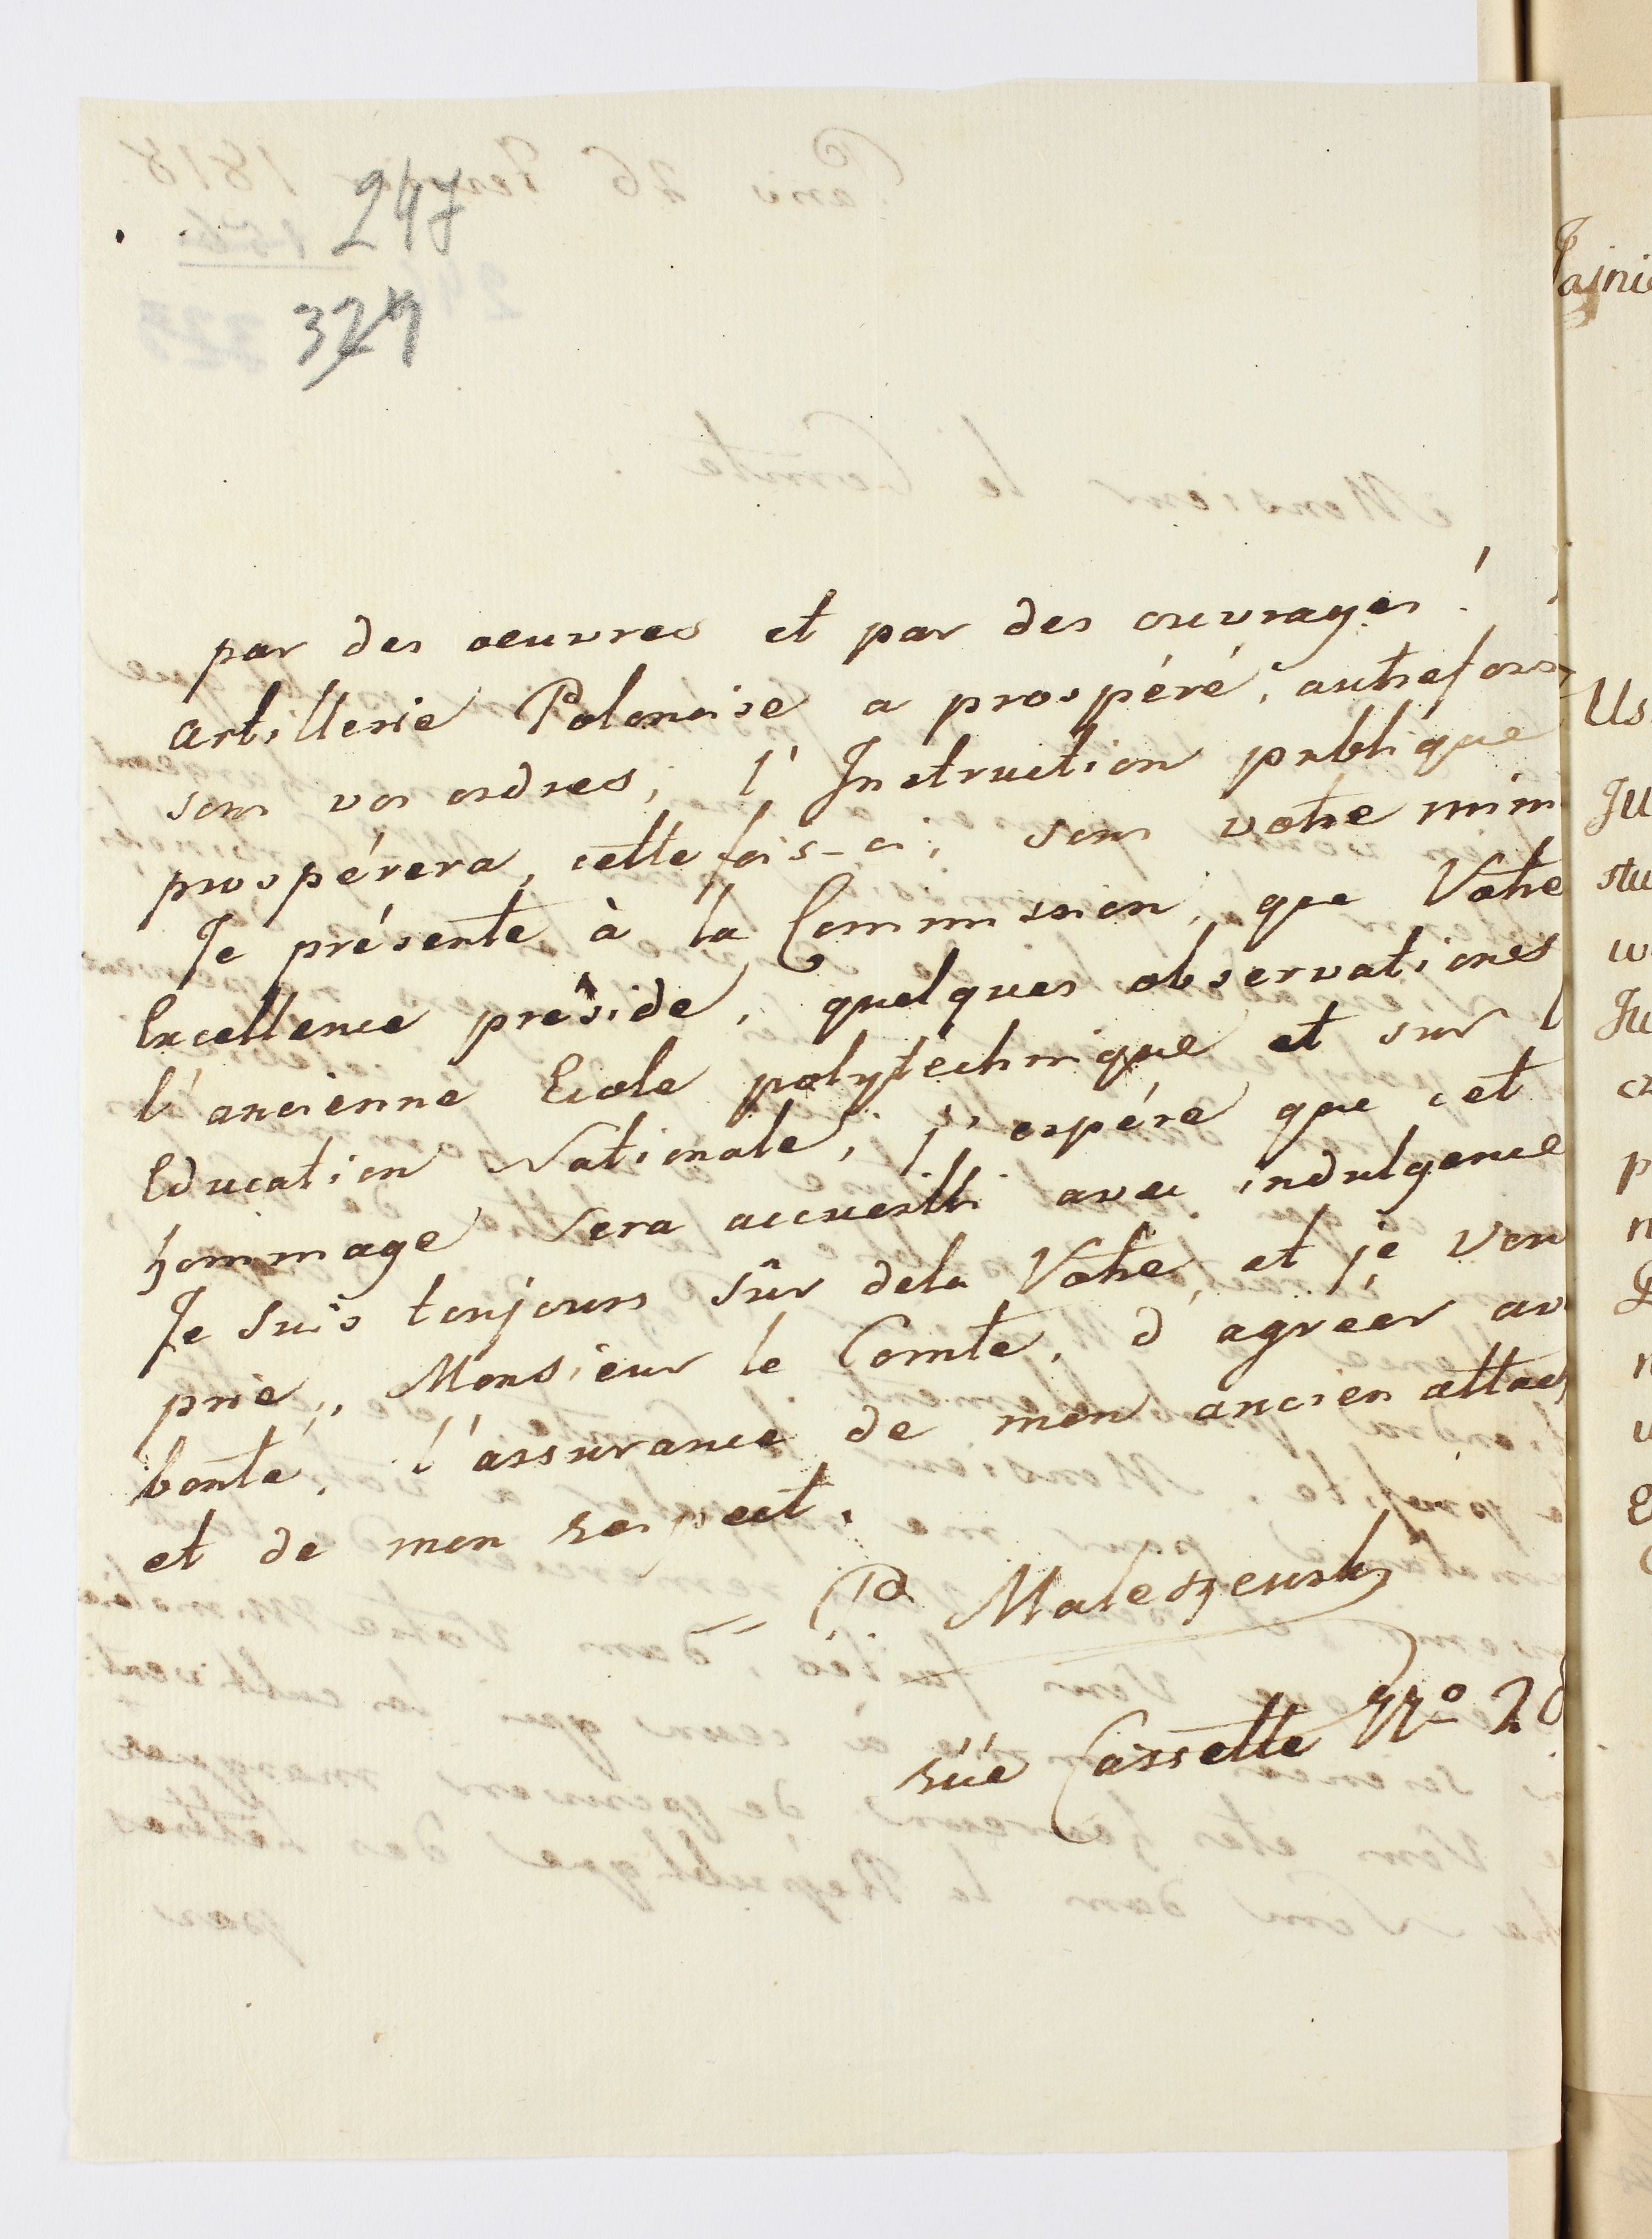 247
327
par des oeuvres et par des ouvrages!
artillerie Polonaise a prospéré, autrefois,
sous vos ordres, l'Instruction publique
prospérera, cette fois-ci, sous votre min
Je présente à la Commission, que Votre
Excellence préside, quelques observationes
l'ancienne Ecole polytechnique et sur l
Education Nationale; j'espére que cet
hommage sera accueilli avec indulgence
Je suis toujours sûr dela Votre, et je vou
prie, Monsieur le Comte, d'agréer av
bonté, l'assurance de mon ancien attach
et de mon respect.
P Maleszewski
rüe Cassette No 20